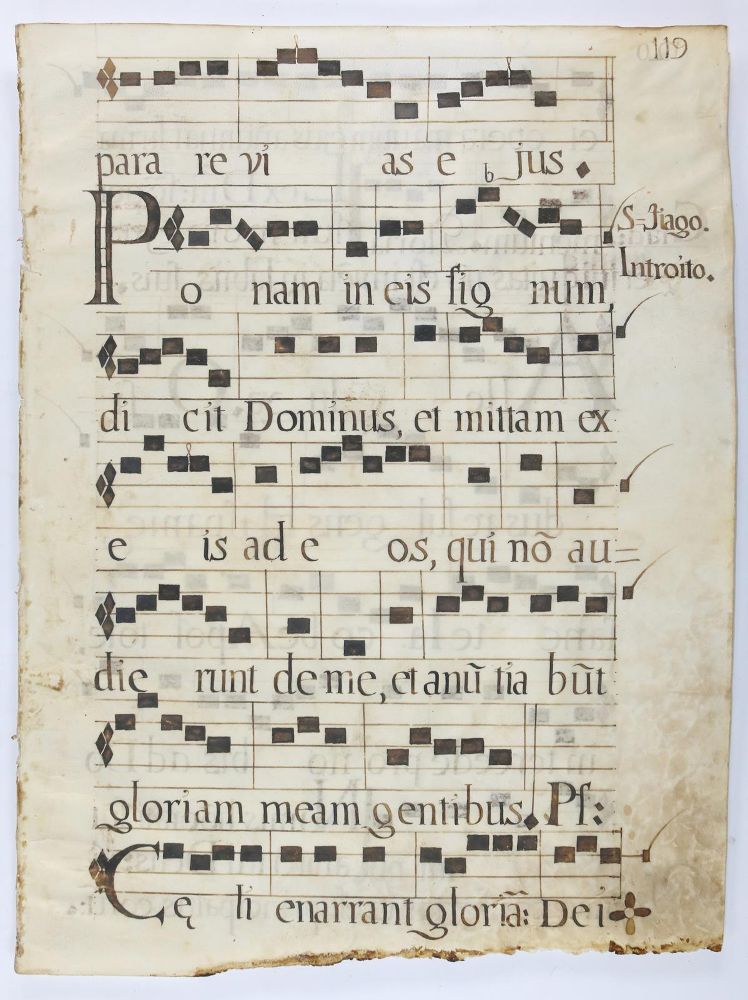 119
para re vi as e jus.
b
S. Tiago.
Introito.
Po nam in eis sig num,
di cit Dominus, et mittam ex
e is ad e os, qui nõ au=
die runt de me, et anũ tia bũt
gloriam meam gentibus. Ps:
Cę li enarrant gloriã: Dei